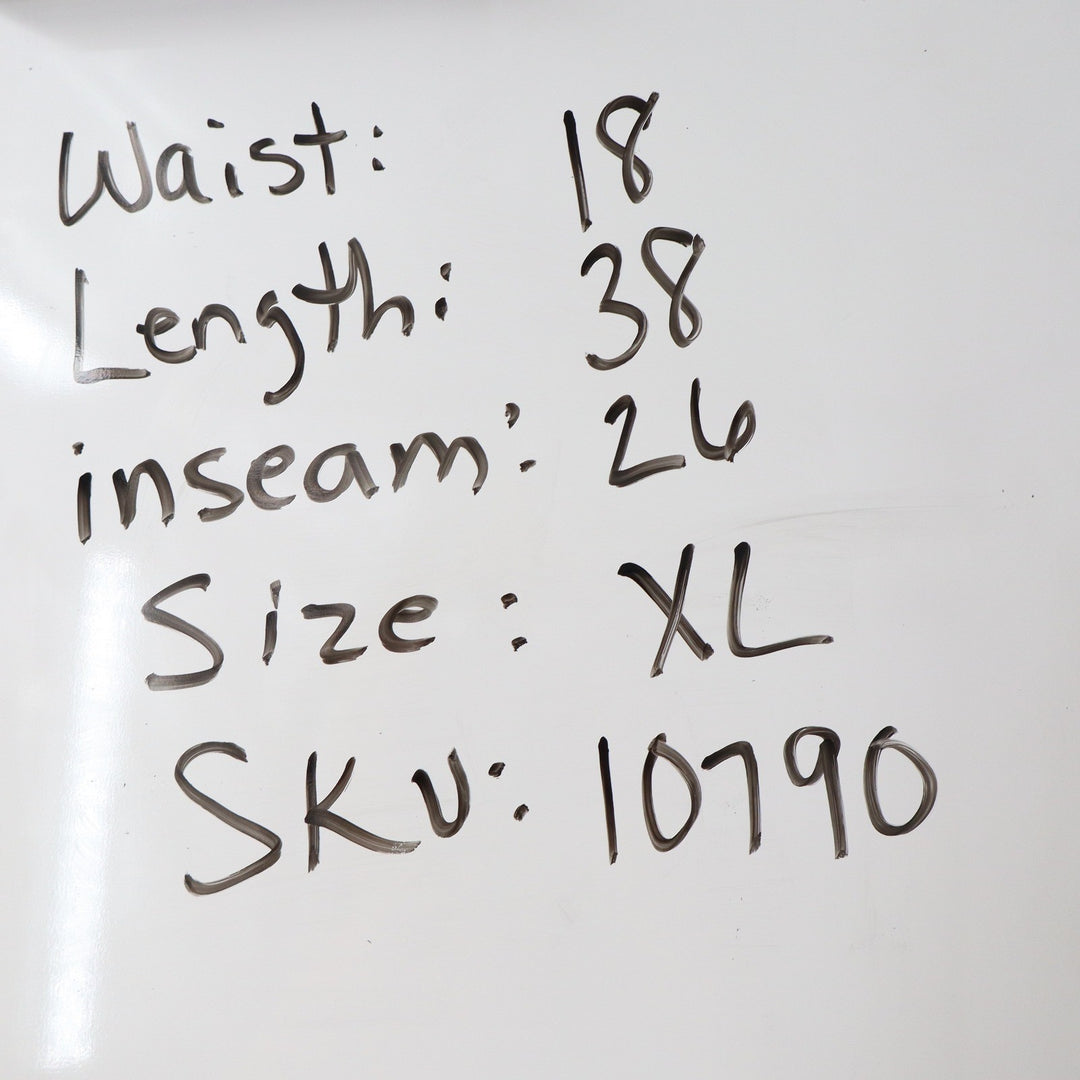 Waist: 18
Length: 38
inseam: 26
Size: XL
SKU: 10790